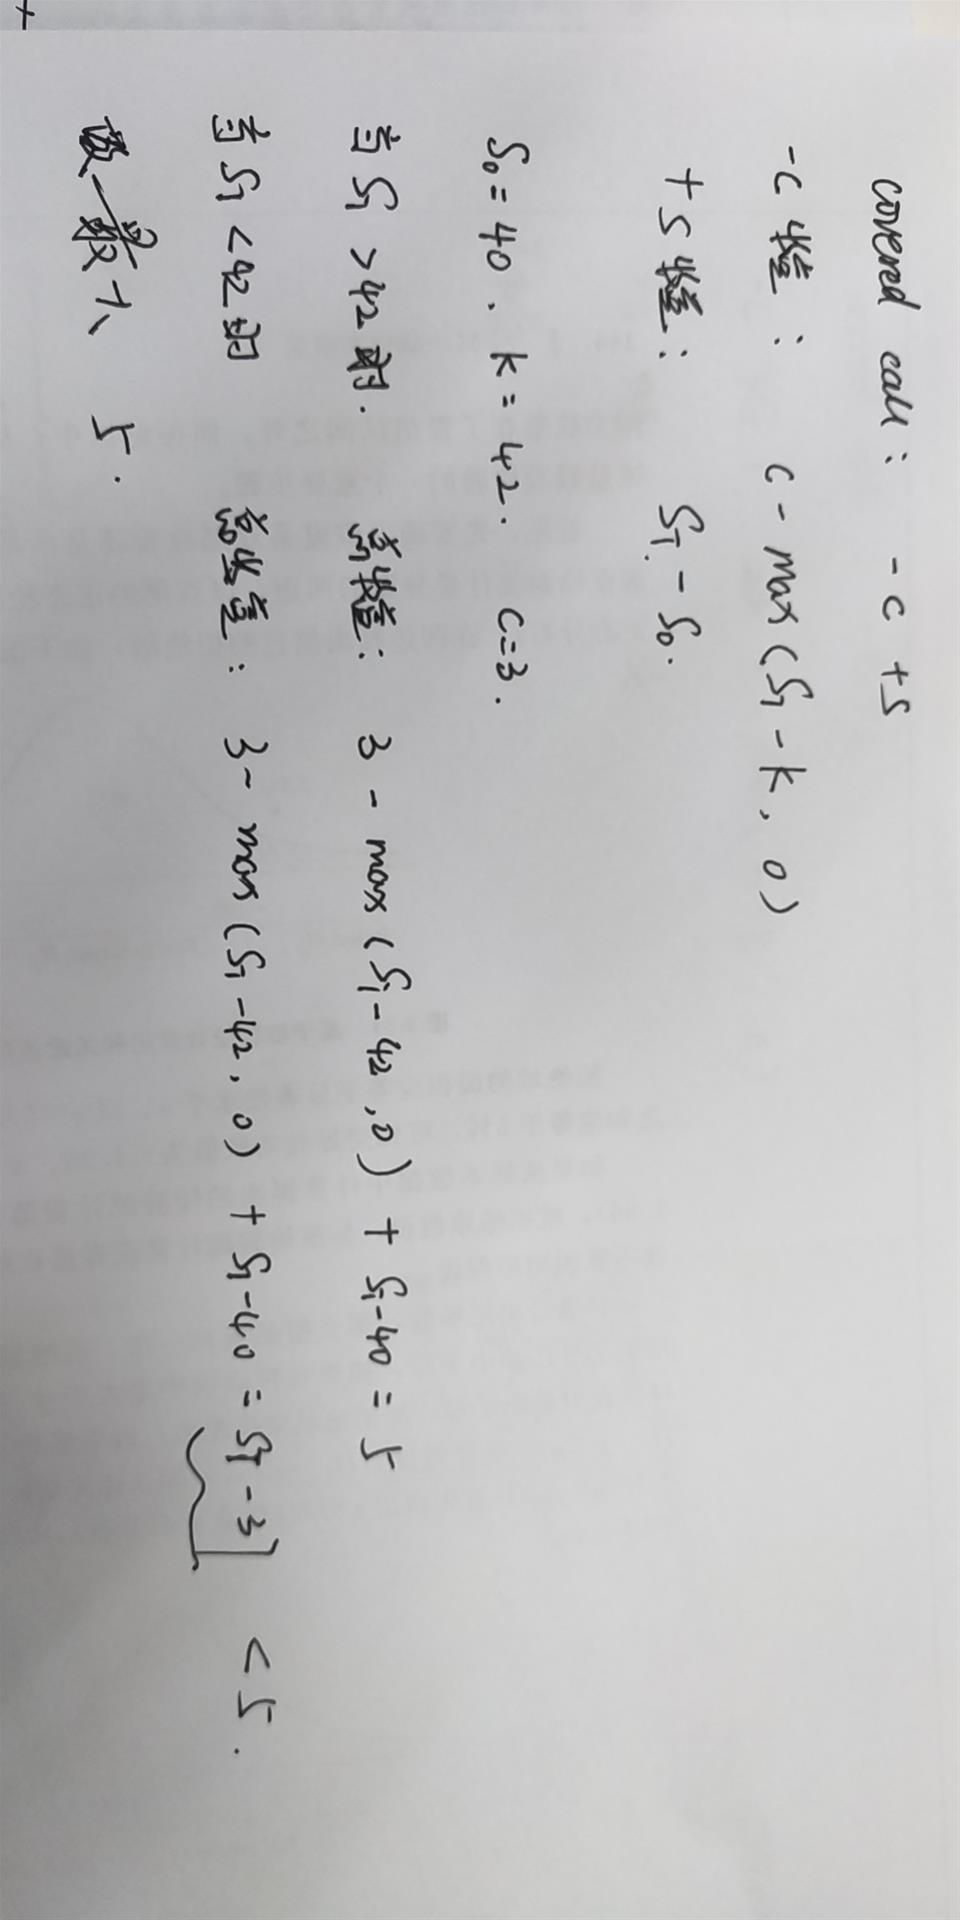 covered call: -c +s
-c 收益: c - max(S_T - k, 0)
+S 收益: S_T - S_0.
S_0 = 40. k = 42. c = 3.
当 S_T > 42 时. 总收益: 3 - max(S_T - 42, 0) + S_T - 40 = 5
当 S_T < 42 时 总收益: 3 - max(S_T - 42, 0) + S_T - 40 = S_T - 3] < 5.
最大 5.